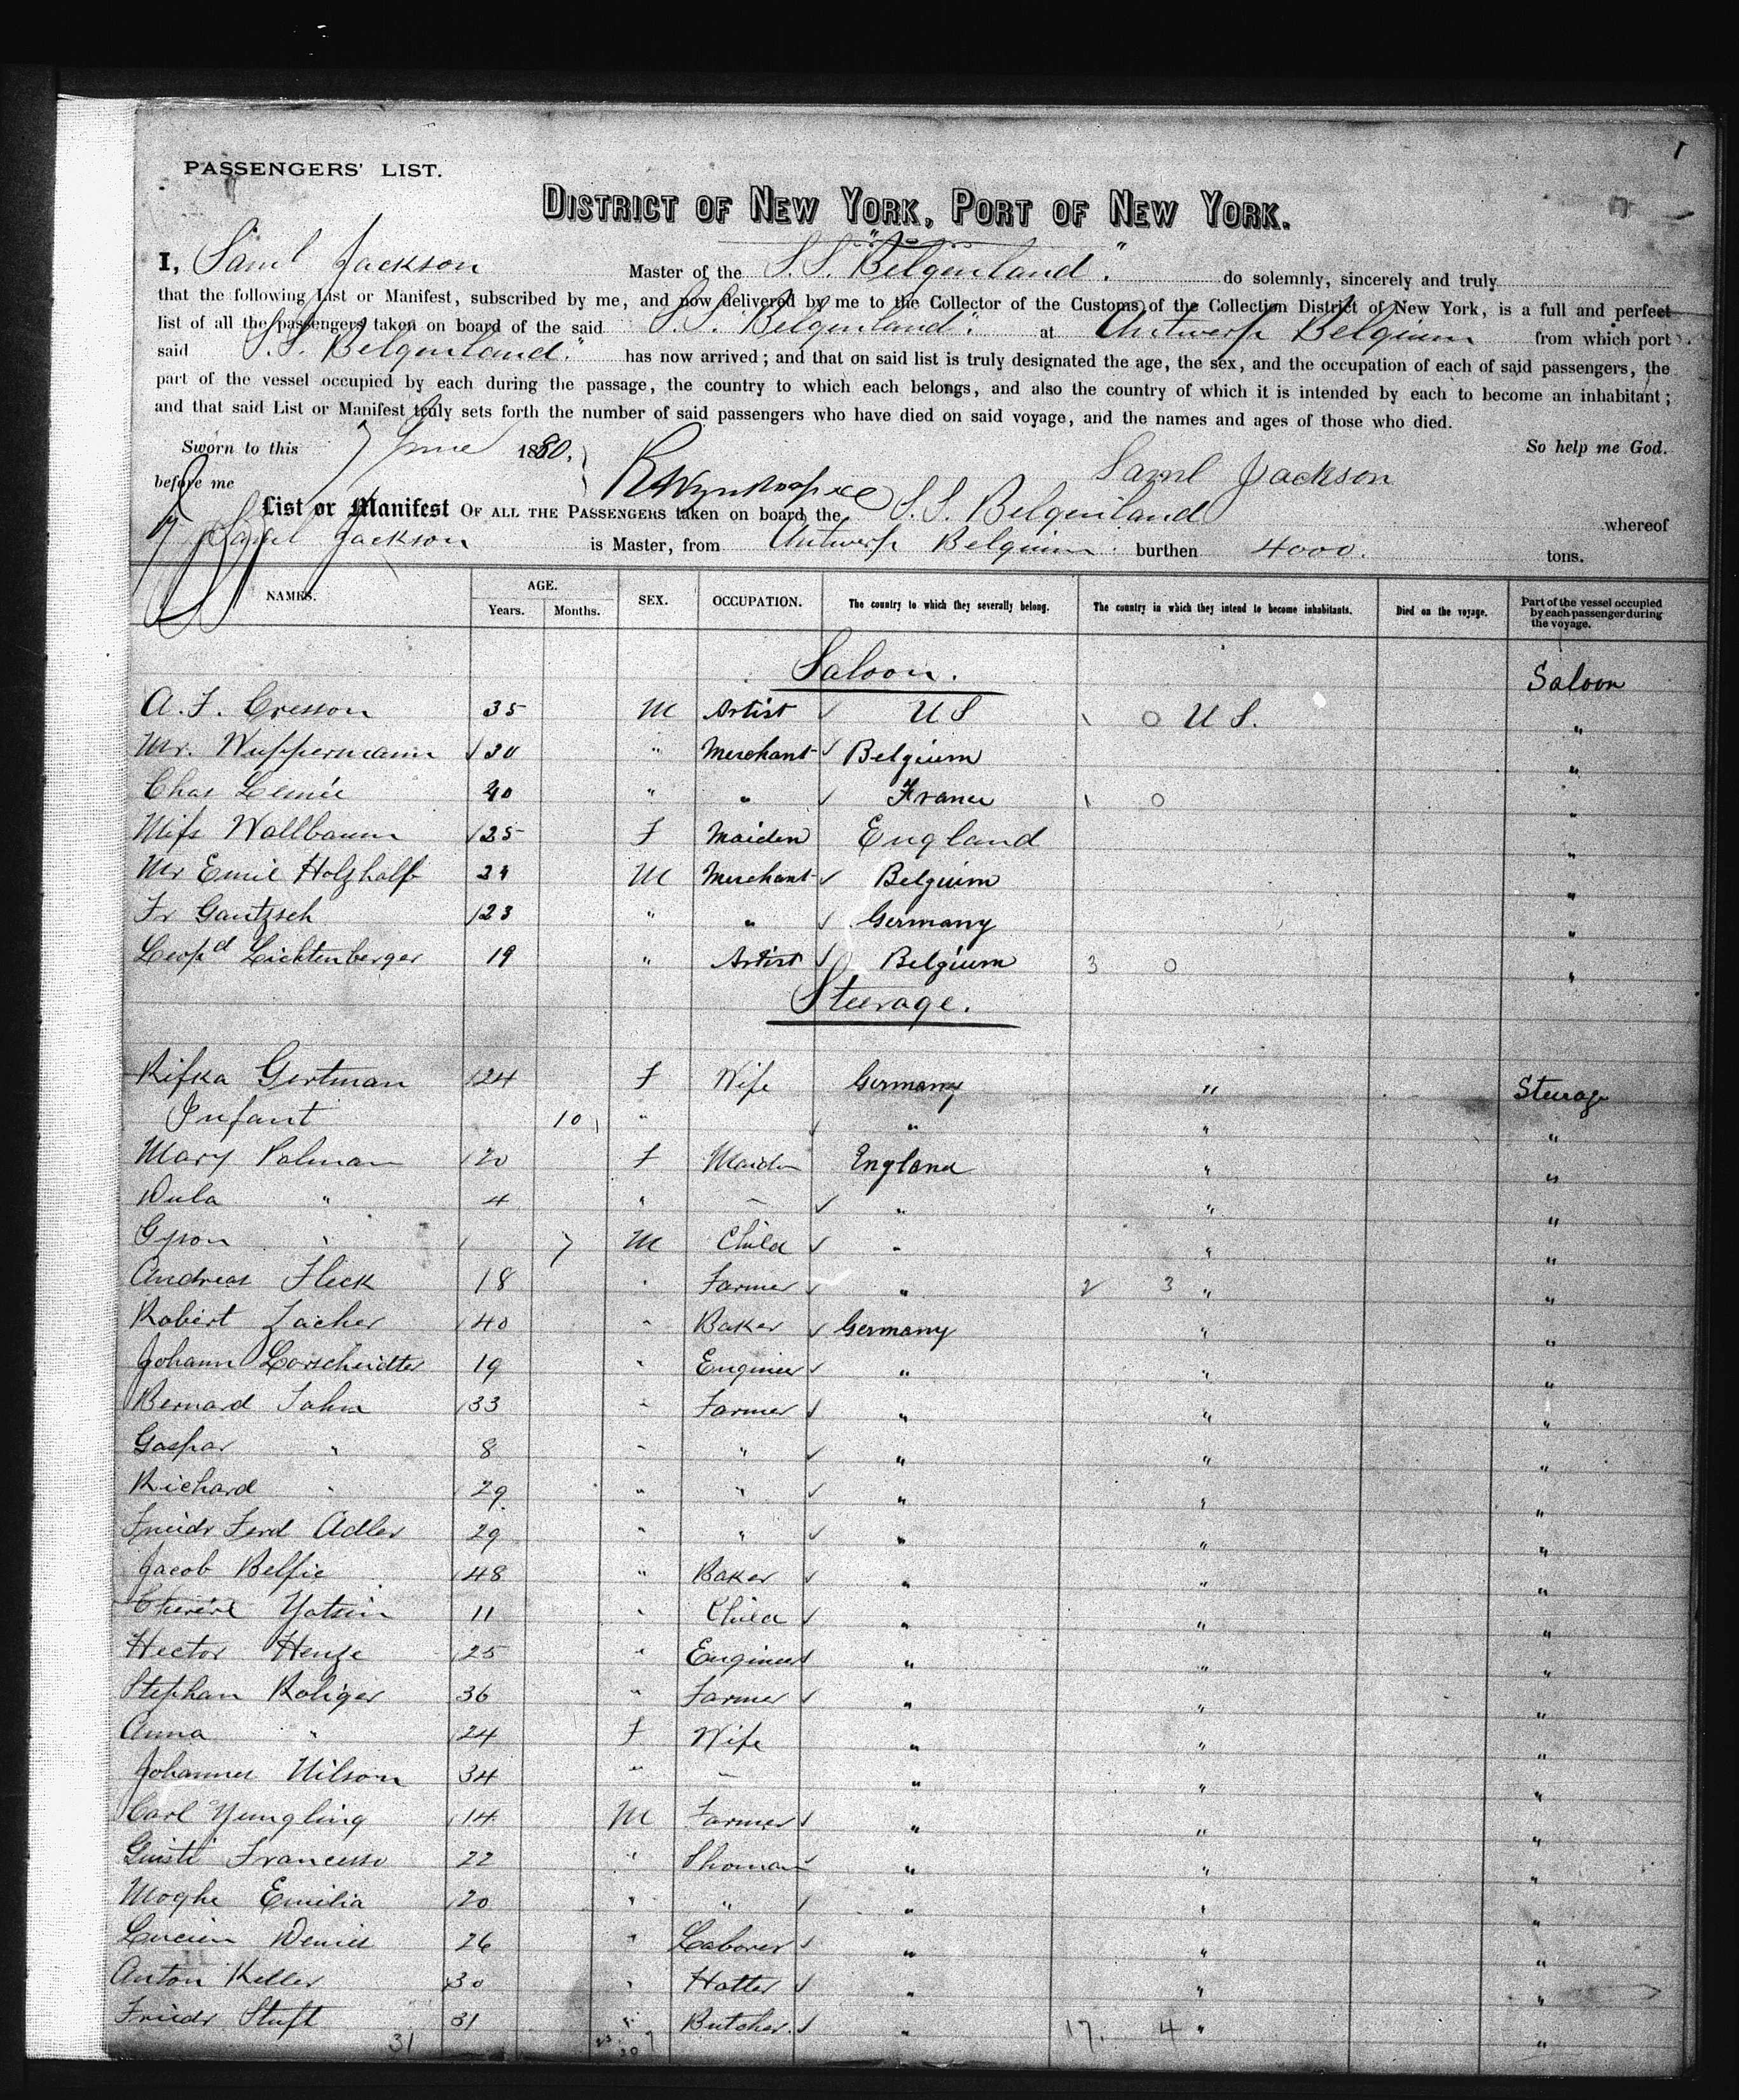 1
PASSENGERS' LIST.
DISTRICT OF NEW YORK, PORT OF NEW YORK.
I, Saml Jackson Master of the S.S. "Belgenland". do solemnly, sincerely and truly
that the following List or Manifest, subscribed by me, and now delivered by me to the Collector of the Customs of the Collection District of New York, is a full and perfect
list of all the passengers taken on board of the said S.S. "Belgenland". at Antwerp Belgium from which port
said S.S. Belgenland." has now arrived; and that on said list is truly designated the age, the sex, and the occupation of each of said passengers, the
part of the vessel occupied by each during the passage, the country to which each belongs, and also the country of which it is intended by each to become an inhabitant;
and that said List or Manifest truly sets forth the number of said passengers who have died on said voyage, and the names and ages of those who died.
Sworn to this 7 June 1880. So help me God.
before me Saml Jackson
List or Manifest OF ALL THE PASSENGERS taken on board the S.S. Belgenland whereof
Saml Jackson is Master, from Antwerp Belgium burthen 4000. tons.
NAMES. AGE. Years. Months. SEX. OCCUPATION. The country to which they severally belong. The country in which they intend to become inhabitants. Died on the voyage. Part of the vessel occupied by each passenger during the voyage.
Saloon. Saloon
A. F. Cresson 35 M Artist ✓ U S \ O U S. "
Mr. Wuppermann 30 " Merchant ✓ Belgium "
Chas 40 " " ✓ France \ O "
Miss Wallbaum 25 F Maiden England "
Mr Emil Holzhalb 24 M Merchant ✓ Belgium "
Fr Gantzsch 23 " " ✓ Germany "
Leopd Lichtenberger 19 " Artist ✓ Belgium 3 O "
Steerage.
Rifka Gertman 24 F Wife Germany " Steerage
Infant 10 " ✓ " " "
Mary Palman 20 F Maiden England " "
Dula " 4 " — ✓ " " "
Gyson " 7 M Child ✓ " " "
Andreas Fleck 18 " Farmer ✓ " 2 3 " "
Robert Zacher 40 " Baker ✓ Germany " "
Johann Lorscheidter 19 " Engineer ✓ " " "
Bernard Jahn 33 " Farmer ✓ " " "
Gaspar " 8 " " ✓ " " "
Richard " 29 " " ✓ " " "
Friedr Ferd Adler 29 " " ✓ " " "
Jacob Belfie 48 " Baker ✓ " " "
11 " Child ✓ " " "
Hector Henze 25 " Engineer ✓ " " "
Stephan Roliger 36 " Farmer ✓ " " "
Anna " 24 F Wife " " "
Johannes Nilson 34 " — " " "
Carl Yungling 14 M Farmer ✓ " " "
Giusti Francesco 22 " Shoman ✓ " " "
Moghe Emilia 20 " " ✓ " " "
Lucien Denies 26 " Laborer ✓ " " "
Anton Keller 30 " Hatter ✓ " " "
Friedr Stuft 31 " Butcher. ✓ " 17. 4 " "
31